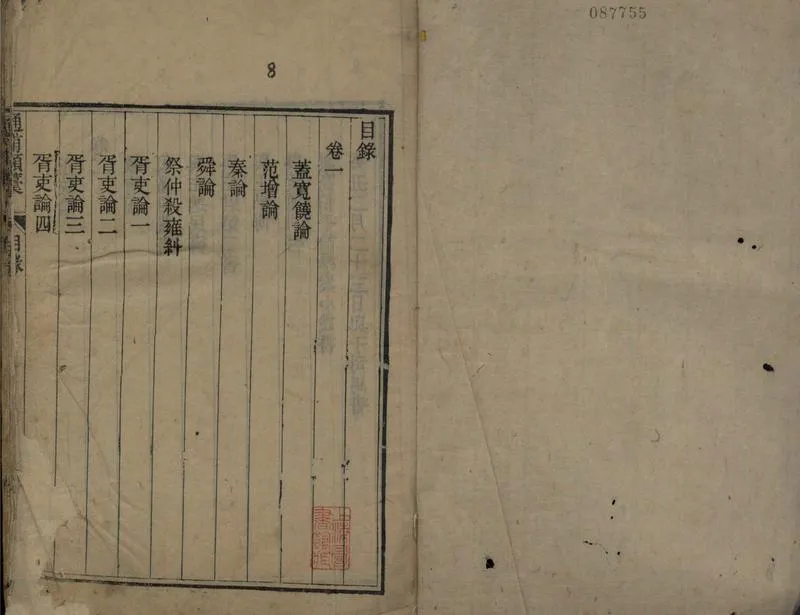 087755
8
目錄
卷一
蓋寬饒論
范增論
秦論
舜論
祭仲殺雍糾
胥吏論一
胥吏論二
胥吏論三
胥吏論四
通甫類槀
目錄
上海圖書館藏